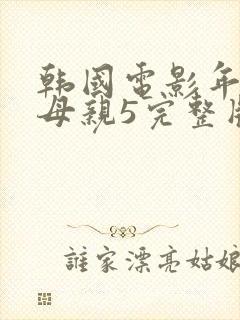 韩國電影年
母親5完整
誰家漂亮姑娘